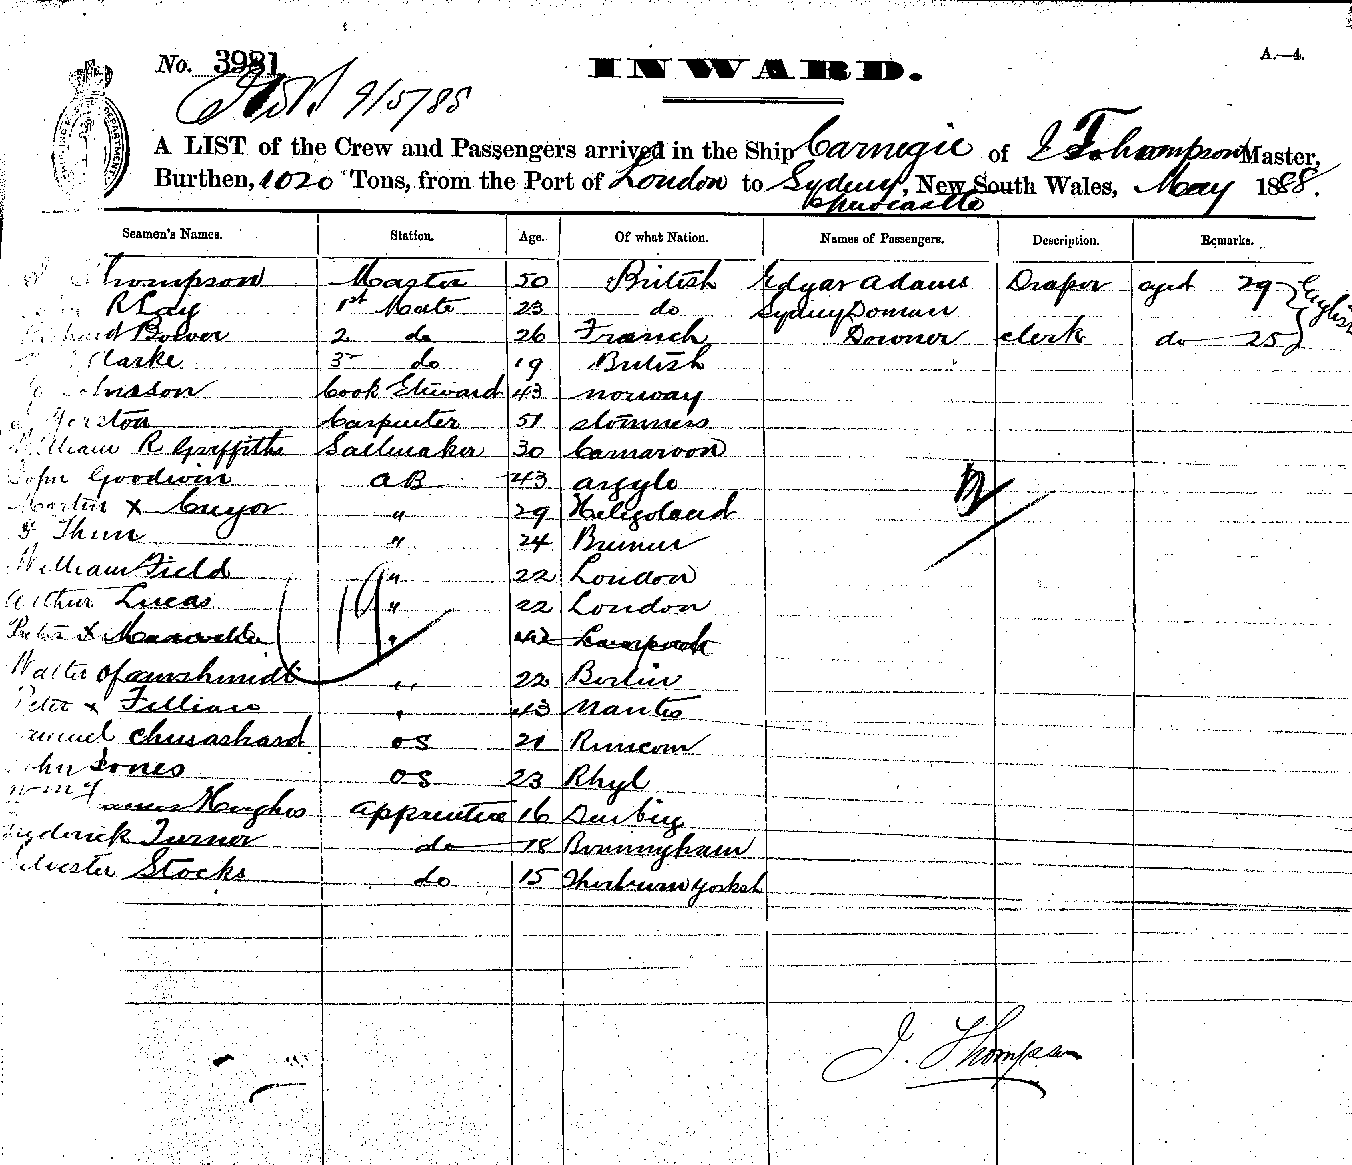 No. 3981
INWARD.
A.—4.
9/5/88
A LIST of the Crew and Passengers arrived in the Ship Carnegie of J Thompson Master,
Burthen, 1020 Tons, from the Port of London to Sydney, New South Wales, May 1888.
Newcastle
Seamen's Names. Station. Age. Of what Nation. Names of Passengers. Description. Remarks.
Thompson Master 50 British Edgar Adams Draper aged 29 English
R Lay 1st Mate 23 do Sydney Doman
Bower 2 do 26 French Downer clerk do 25
Clarke 3 do 19 British
Cook Steward 43 norway
Carpenter 51 stomness
William R Griffiths Sailmaker 30 Carnarvon
John Goodwin AB 43 argyle
Martin X " 29 Heligoland
Thun " 24 Bremen
William Field " 22 London
Arthur Lucas " 22 London
Peter X "
Walter " 22 Berlin
Peter x " 43 Nantes
OS 21 Runcorn
John Jones OS 23 Rhyl
James Hughes apprentice 16 Denbig
Frederick Turner do 18 Birmingham
Silvester Stocks do 15
19
J. Thompson